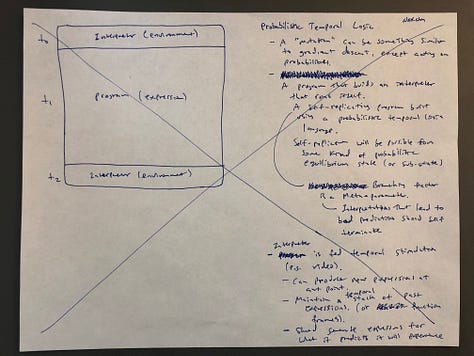 t₀
Interpreter (environment)
t₁
Program (expression)
t₂
Interpreter (environment)
Probabilistic Temporal Logic
- A "mutation" can be something similar
to gradient descent, except acting on
probabilities.
- A program that builds an interpreter
that runs itself.
A self-replicating program built
using a probabilistic temporal logic
language.
Self-replication will be possible for
some kind of probabilistic
equilibrium state (or sub-state)
Branching factor
is a Metaparameter
- Interpretations that lead to
bad predictions should self
terminate
Interpreter
- is fed temporal stimulation
(e.g. video).
- Can produce new expressions at
any point.
- Maintain a temporal stack of past
expressions. (or function
frames).
- Should generate expressions for
what it predicts it will experience